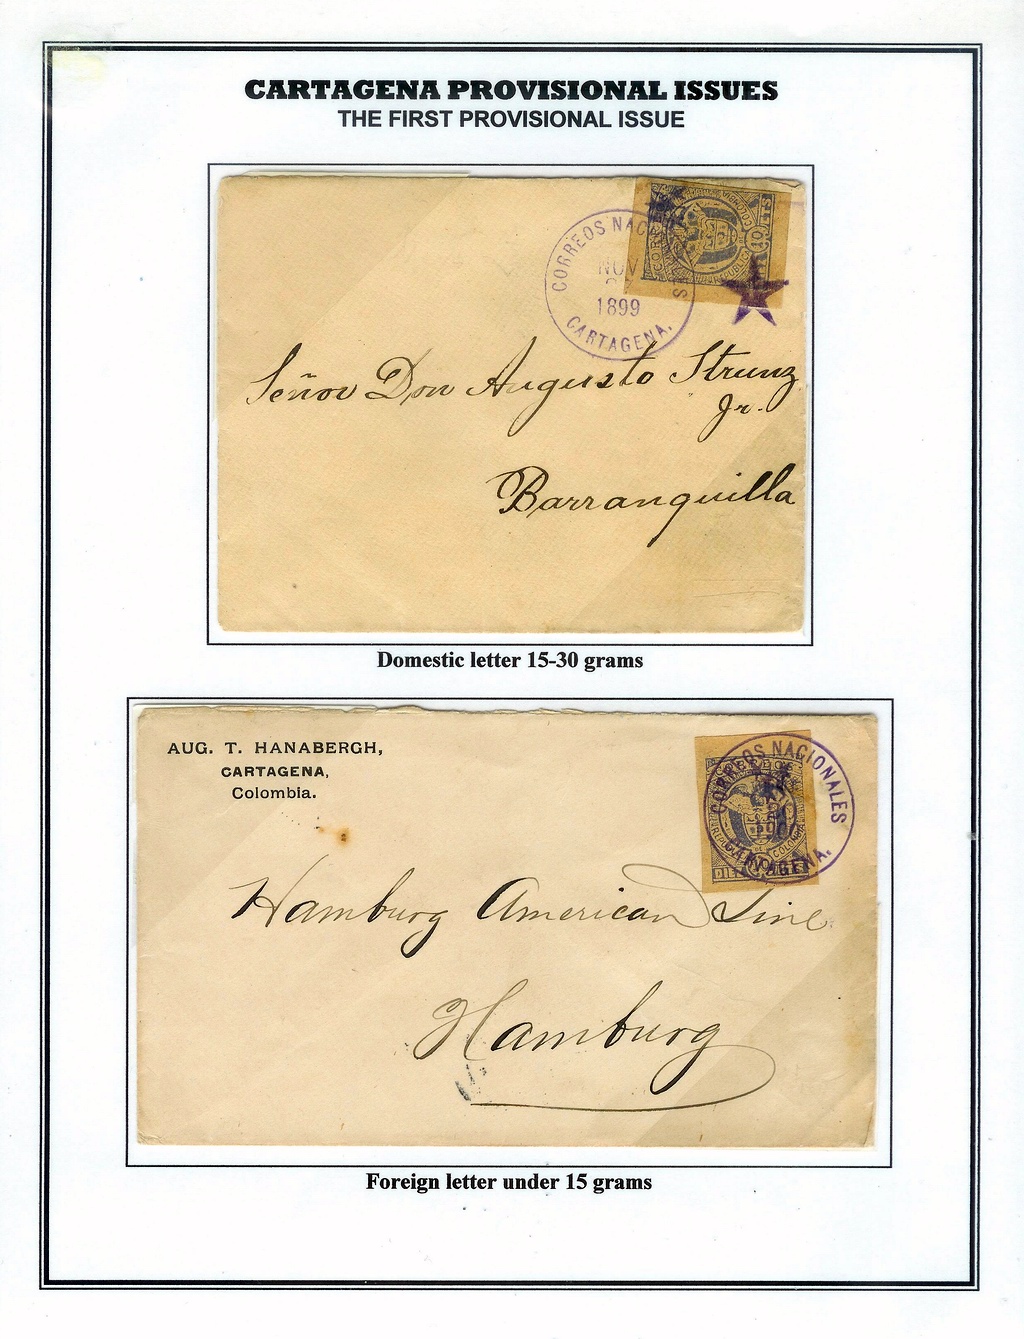 CARTAGENA PROVISIONAL ISSUES
THE FIRST PROVISIONAL ISSUE
CORREOS NACIONALES
NOV
1899
CARTAGENA.
10 CTS
COLOMBIA
Señor Don Augusto Strunz
Jr.
Barranquilla
Domestic letter 15-30 grams
AUG. T. HANABERGH,
CARTAGENA,
Colombia.
CORREOS NACIONALES
CARTAGENA.
COLOMBIA
Hamburg American Line
Hamburg
Foreign letter under 15 grams